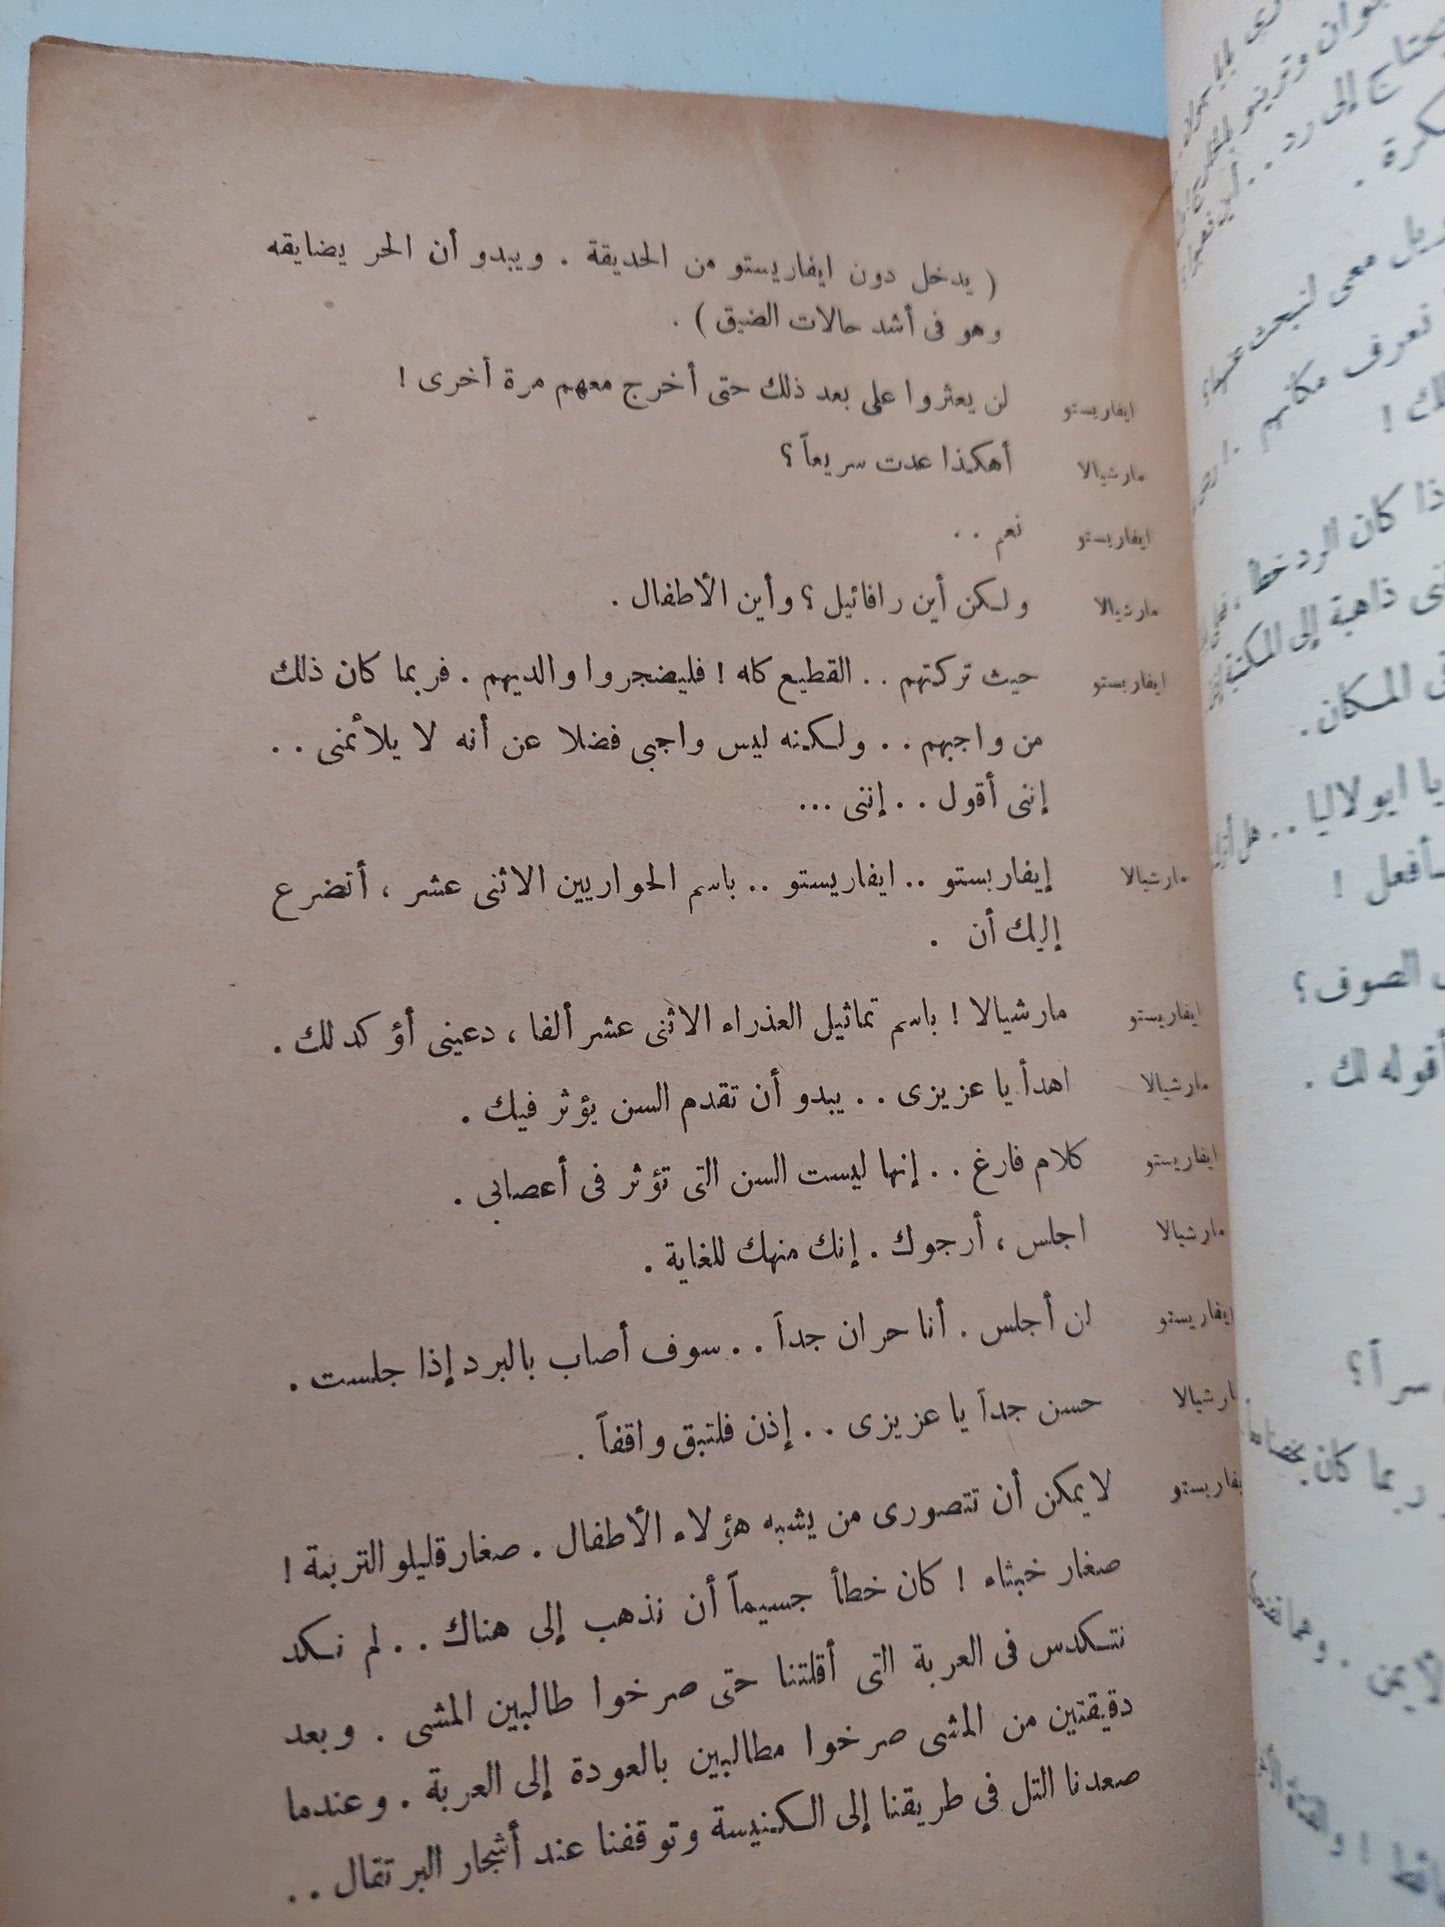 ( يدخل دون ايفاريستو من الحديقة . ويبدو أن الحر يضايقه
وهو فى أشد حالات الضيق ) .
ايفاريستو لن يعثروا على بعد ذلك حتى أخرج معهم مرة أخرى !
مارشيالا أهكذا عدت سريعاً ؟
ايفاريستو نعم . .
مارشيالا ولكن أين رافائيل ؟ وأين الأطفال .
ايفاريستو حيث تركتهم . . القطيع كله ! فليضجروا والديهم . فربما كان ذلك
من واجبهم . . ولكنه ليس واجبى فضلا عن أنه لا يلائمنى . .
إننى أقول . . إننى ...
مارشيالا إيفاريستو .. ايفاريستو .. باسم الحواريين الاثنى عشر ، أتضرع
إليك أن .
ايفاريستو مارشيالا ! باسم تماثيل العذراء الاثنى عشر ألفا ، دعينى أؤكد لك .
مارشيالا اهدأ يا عزيزى . . يبدو أن تقدم السن يؤثر فيك .
ايفاريستو كلام فارغ . . إنها ليست السن التى تؤثر فى أعصابى .
مارشيالا اجلس ، أرجوك . إنك منهك للغاية .
ايفاريستو لن أجلس . أنا حران جداً . . سوف أصاب بالبرد إذا جلست .
مارشيالا حسن جداً يا عزيزى . . إذن فلتبق واقفاً .
ايفاريستو لا يمكن أن تتصورى من يشبه هؤلاء الأطفال . صغار قليلو التربية !
صغار خبثاء ! كان خطأ جسيماً أن نذهب إلى هناك . . لم نكد
نتكدس فى العربة التى أقلتنا حتى صرخوا طالبين المشى . وبعد
دقيقتين من المشى صرخوا مطالبين بالعودة إلى العربة . وعندما
صعدنا التل فى طريقنا إلى الكنيسة وتوقفنا عند أشجار البرتقال . .
يحتاج إلى رد . .
معى لنبحث
نعرف مكانهم
كان الرد خطأ
ذاهبة إلى
المكان .
يا ايولاليا . .
سأفعل !
الصوف ؟
أقوله لك .
سراً ؟
ربما كان